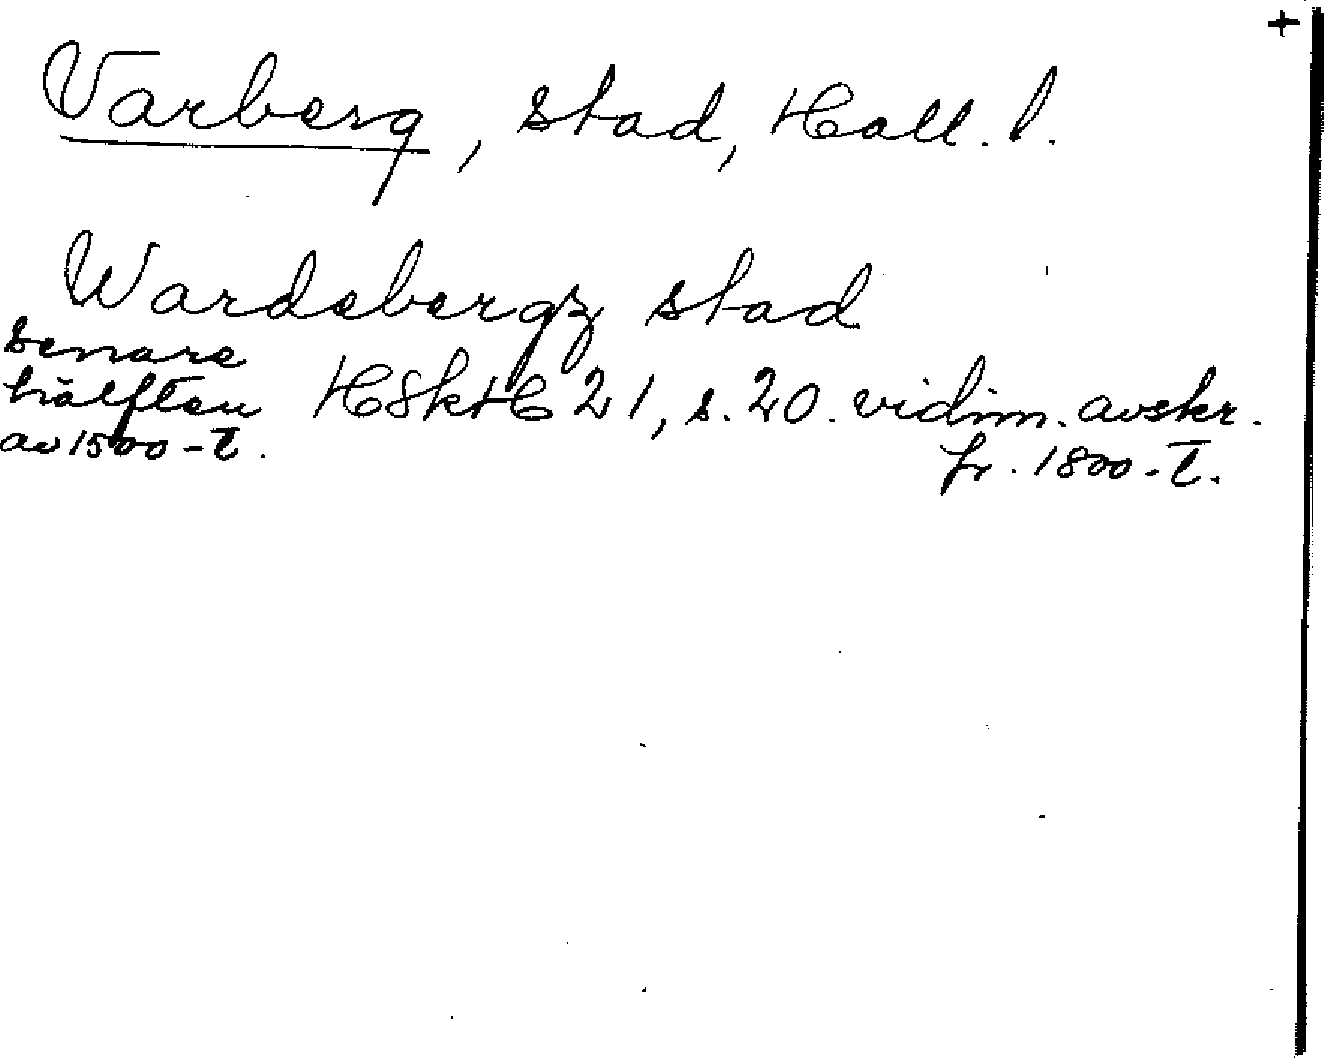 +
Varberg, stad, Hall. l.
Wardebergz stad
senare
hälften HSkHC 21, s. 20. vidim. avskr.
av 1500-t. fr. 1800-t.